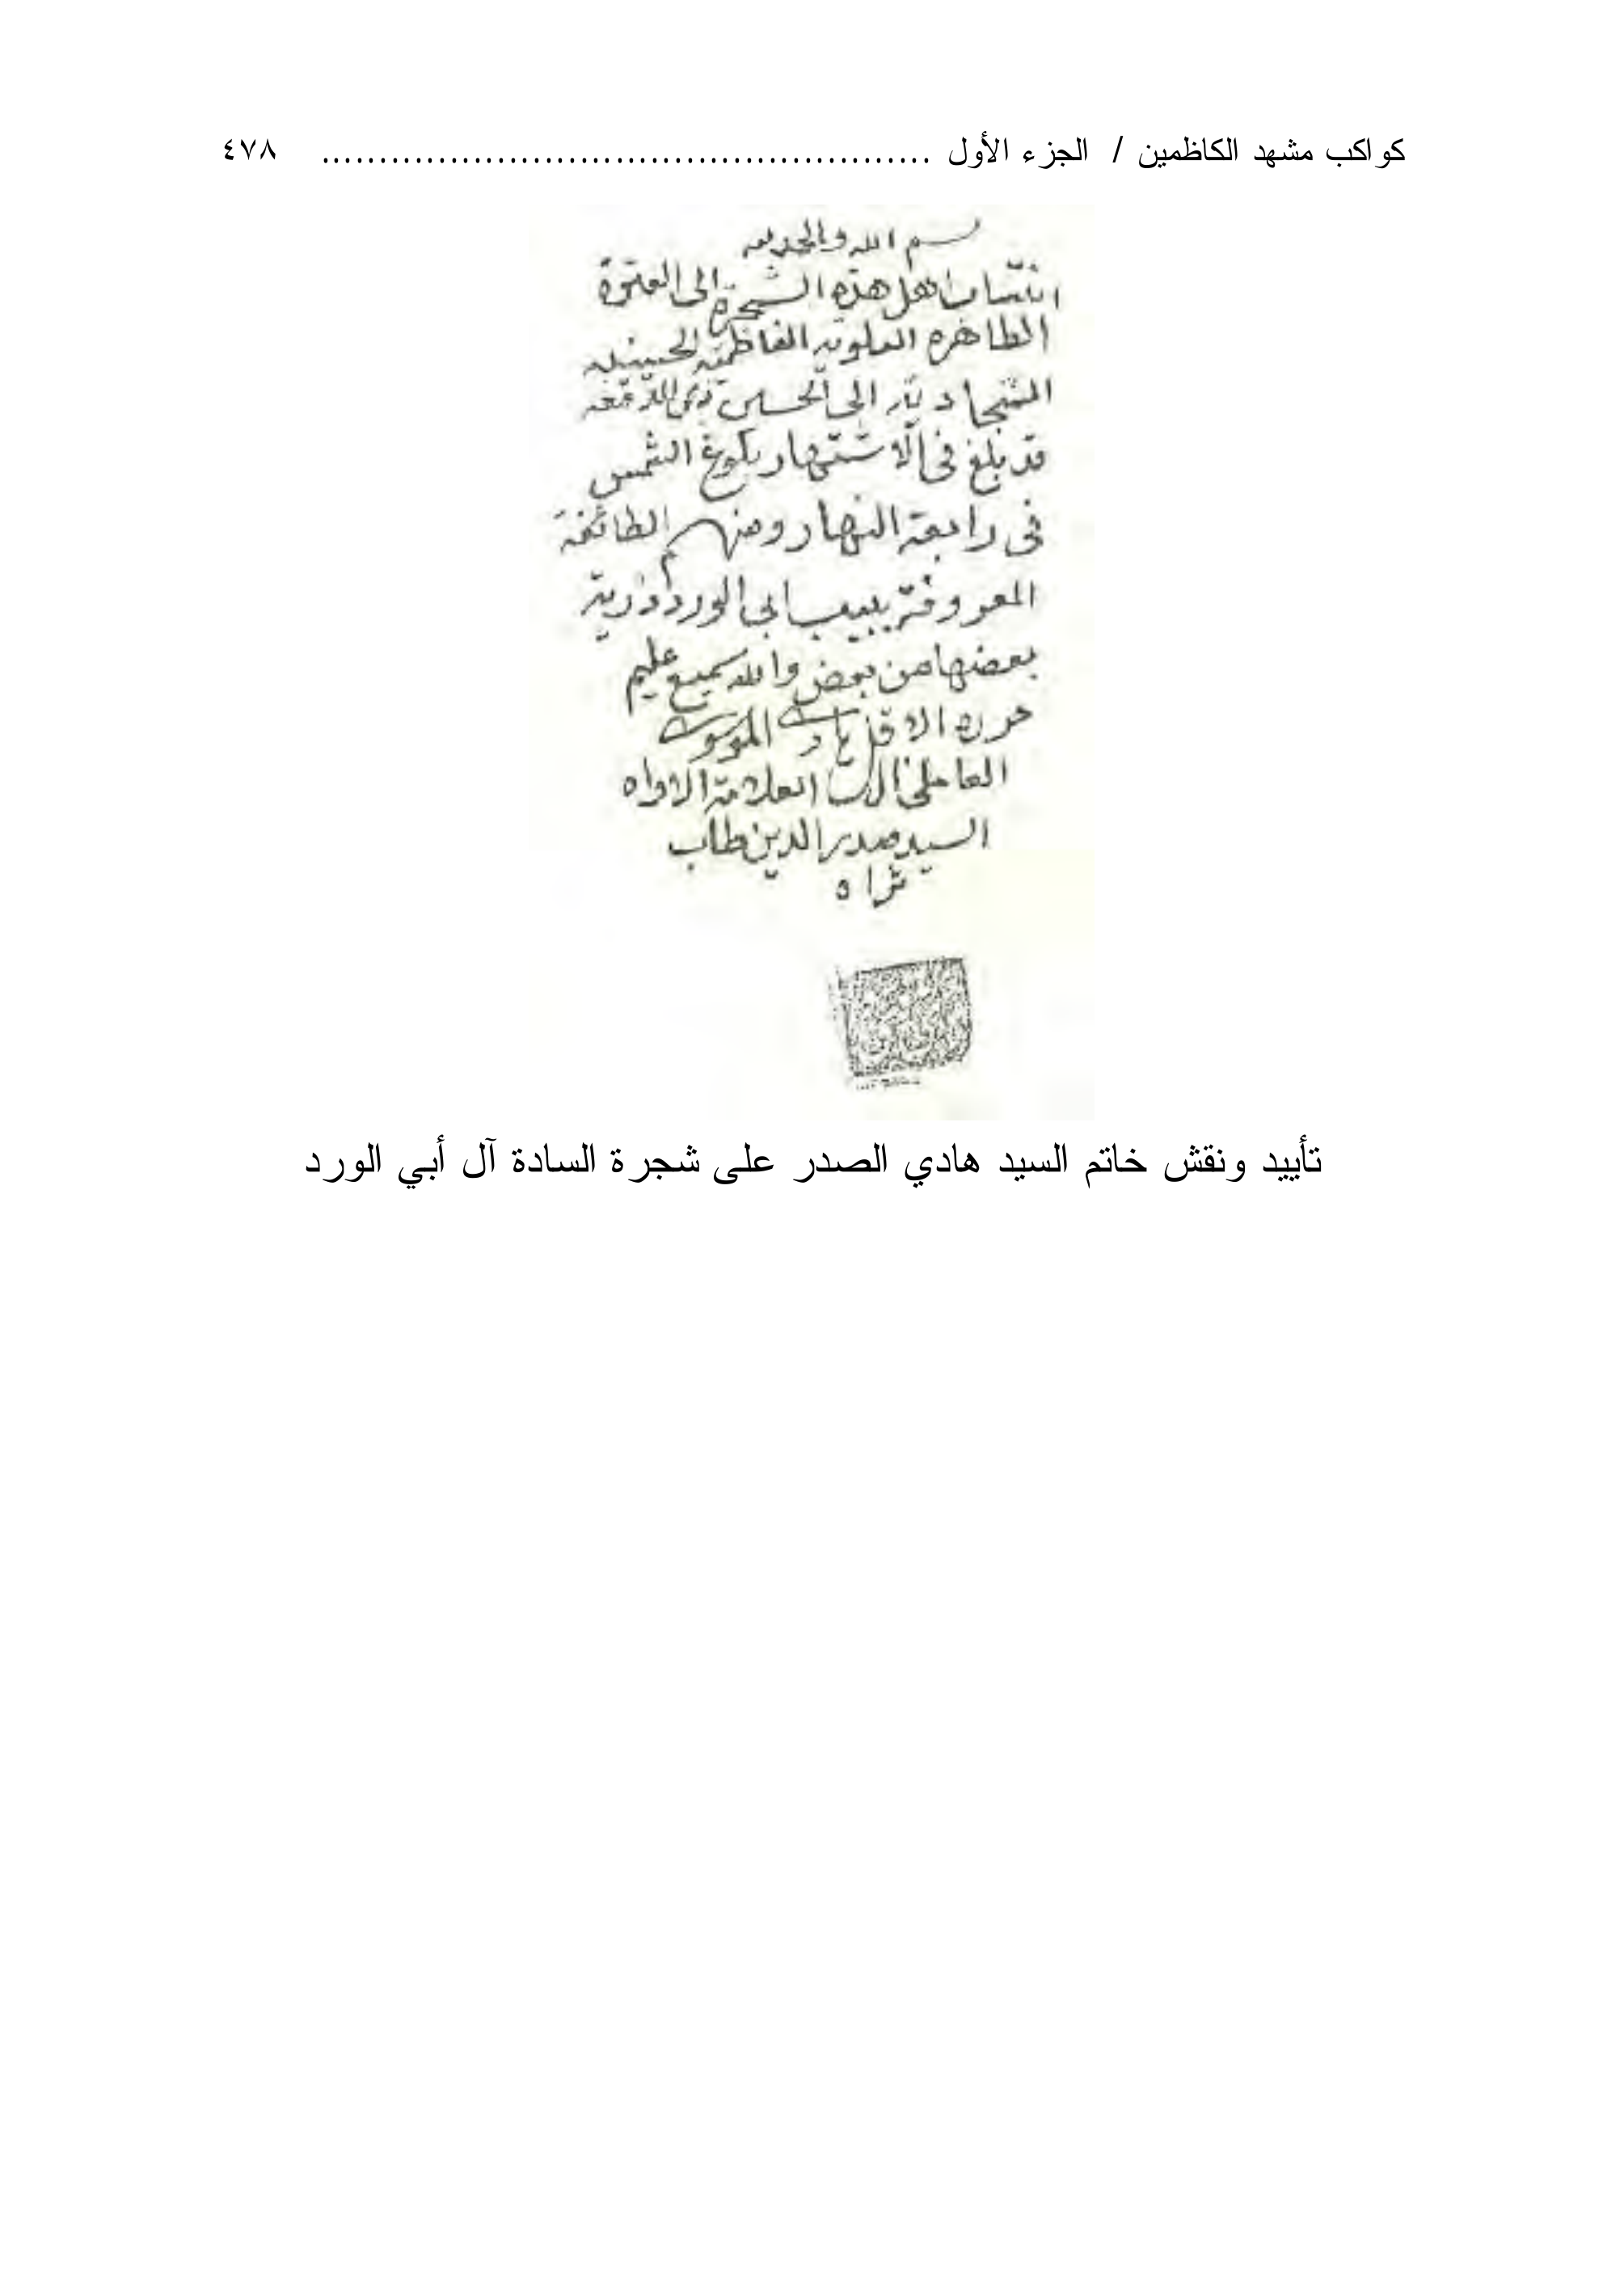 كواكب مشهد الكاظمين / الجزء الأول ..................................................... ٤٧٨
بسم الله والحمد لله
انتساب اهل هذه الشجرة الى العترة
الطاهره العلويه الفاطميه الحسينيه
السجاديه الى الحسين
قد بلغ فى الاشتهار بلوغ الشمس
فى رابعة النهار ومنهم الطائفة
المعروفة ببيت ابى الورد ذرية
بعضها من بعض والله سميع عليم
حرره الاقل هادى الموسوى
العاملى العلامة الاواه
السيد صدر الدين طاب
ثراه
تأييد ونقش خاتم السيد هادي الصدر على شجرة السادة آل أبي الورد